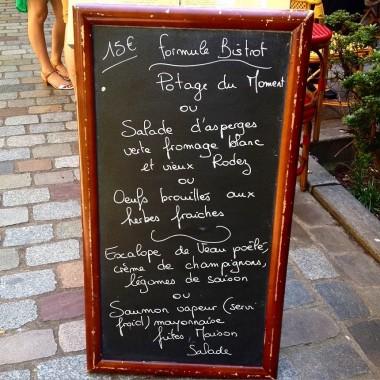 15€ formule Bistrot
Potage du Moment
ou
Salade d'asperges
verte fromage blanc
et vieux Rodez
ou
Oeufs brouillés aux
herbes fraîches
Escalope de Veau poêlé,
crème de champignons,
légumes de saison
ou
Saumon vapeur (servi
froid) mayonnaise
frites Maison
Salade